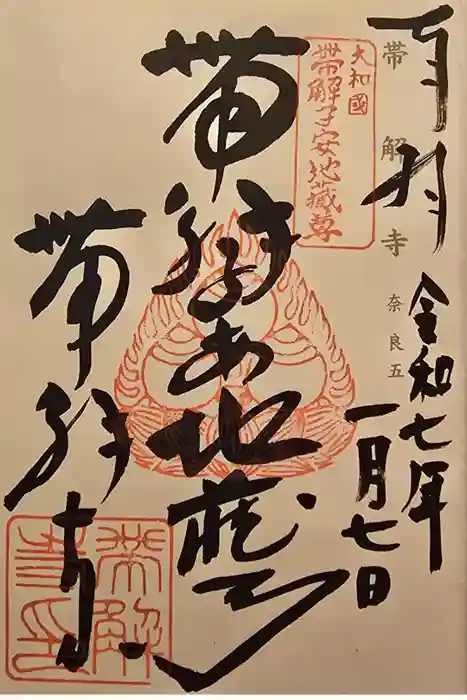 奉拝
帯解寺
奈良五
令和七年
一月七日
大和國
帯解子安地蔵尊
帯解子安地蔵
帯解寺
帯解寺印